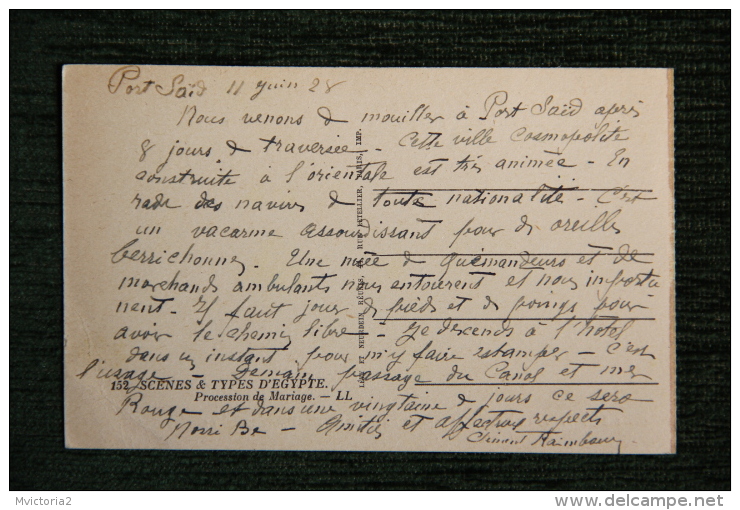 Port Saïd 11 Juin 28
Nous venons de mouiller à Port Saïd après
8 jours de traversée - Cette ville cosmopolite
construite à l'orientale est très animée - En
rade des navires de toute nationalité - C'est
un vacarme assourdissant pour des oreilles
berrichonnes. Une nuée de quémandeurs et de
marchands ambulants nous entourent et nous importu
nent - Il faut jouer des pieds et des poings pour
avoir le chemin libre - Je descends à l'hôtel
dans un instant pour m'y faire estamper - c'est
l'usage - Demain passage du Canal et mer
Rouge et dans une vingtaine de jours ce sera
- Amitiés et affectueux respects
152. SCÈNES & TYPES D'EGYPTE.
Procession de Mariage. - LL
PARIS, IMP.
Mvictoria2
www.delcampe.net